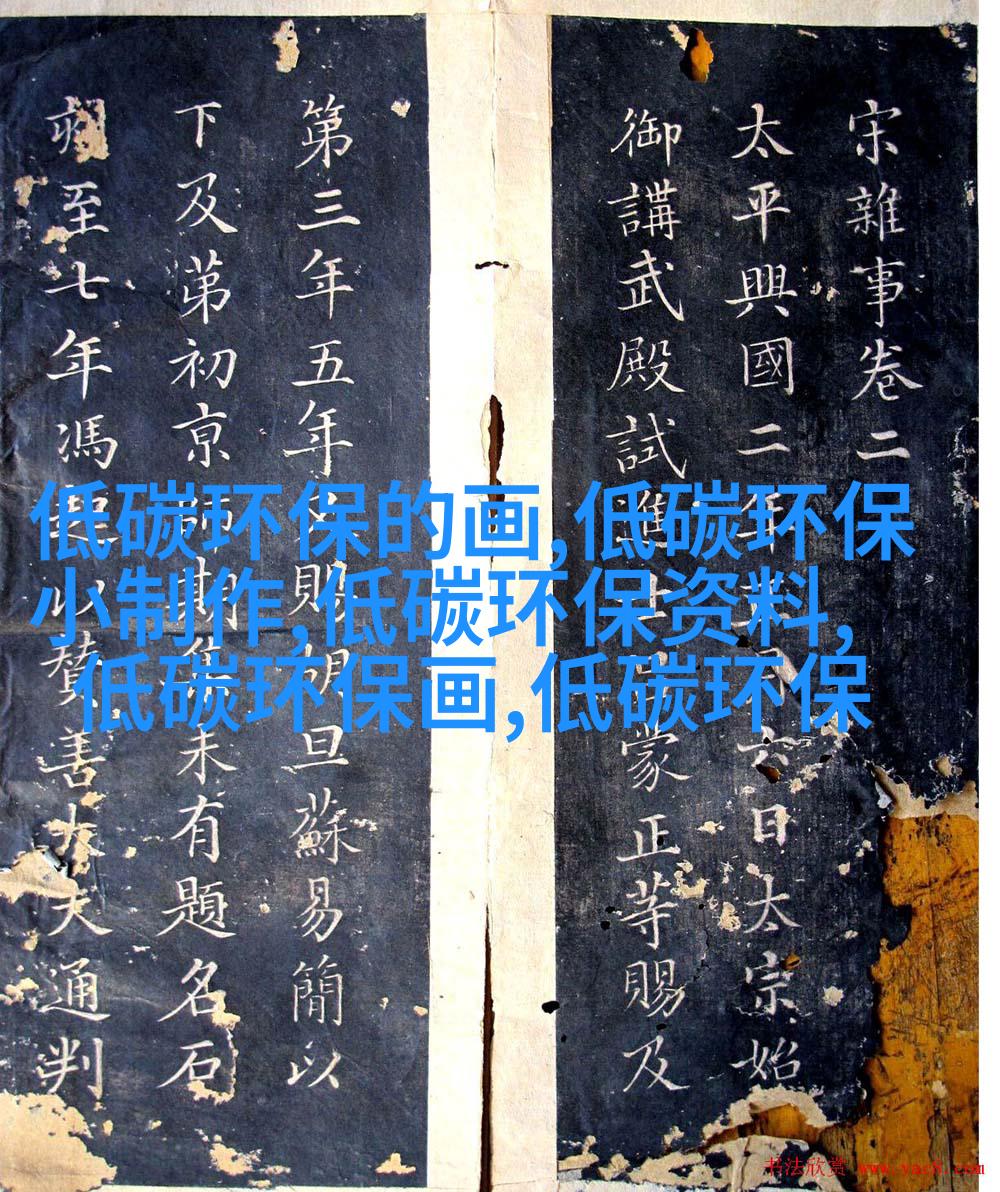 宋雜事卷二
太平興國二年月六日太宗始
御講武殿試進士呂蒙正等賜及
第三年五年賜胡旦蘇易簡以
下及苐初亰師期集未有題名石
至七年馮拯以贊善大夫通判
低碳环保的画,低碳环保
小制作,低碳环保资料,
低碳环保画,低碳环保
书法欣赏 www.yac8.com